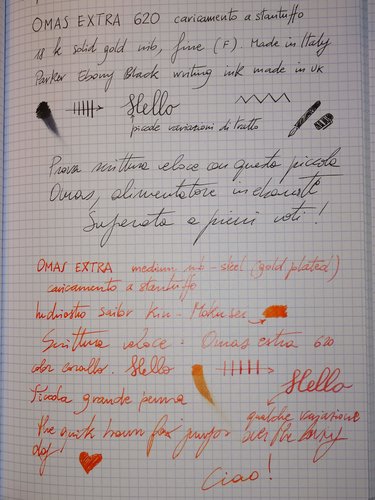 OMAS EXTRA 620 caricamento a stantuffo
18 k solid gold nib, fine (F). Made in Italy
Parker Ebony Black writing ink made in UK
Hello
piccole variazioni di tratto
Prova scrittura veloce con questa piccola
Omas, alimentatore in ebanite
Superata a pieni voti!
OMAS EXTRA medium nib - steel (gold plated)
caricamento a stantuffo
Inchiostro Sailor Kin-Mokusei
Scrittura veloce. Omas extra 620
color corallo. Hello
Hello
Piccola grande penna
qualche variazione
The quick brown fox jumps over the lazy
dog!
Ciao!